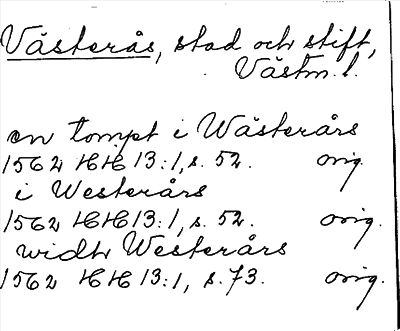 Västerås, stad och stift,
Västm. l.
en tompt i Wästerårs
1562 HH 13:1, s. 52. orig.
i Westerårs
1562 HH 13:1, s. 52. orig.
widh Westerårs
1562 HH 13:1, s. 73. orig.